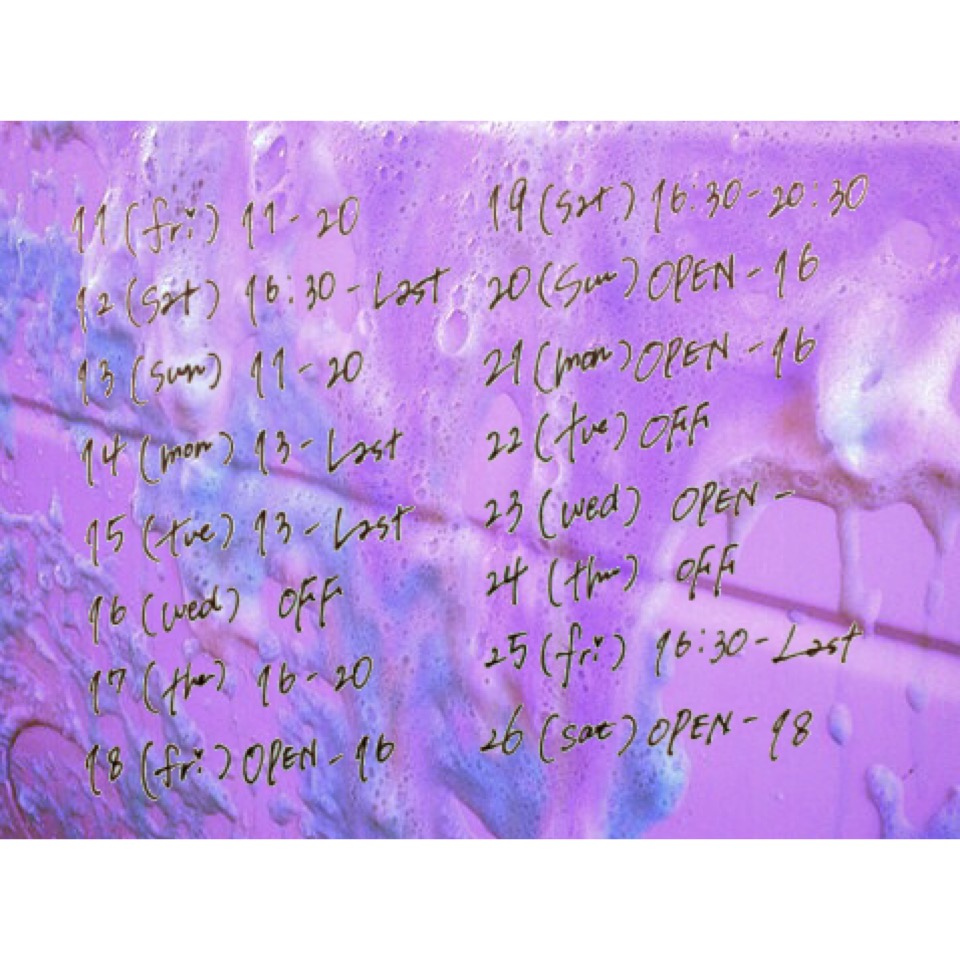 11 (fri) 11-20
12 (sat) 16:30-Last
13 (sun) 11-20
14 (mon) 13-Last
15 (tue) 13-Last
16 (wed) OFF
17 (thu) 16-20
18 (fri) OPEN-16
19 (sat) 16:30-20:30
20 (sun) OPEN-16
21 (mon) OPEN-16
22 (tue) OFF
23 (wed) OPEN-
24 (thu) OFF
25 (fri) 16:30-Last
26 (sat) OPEN-18